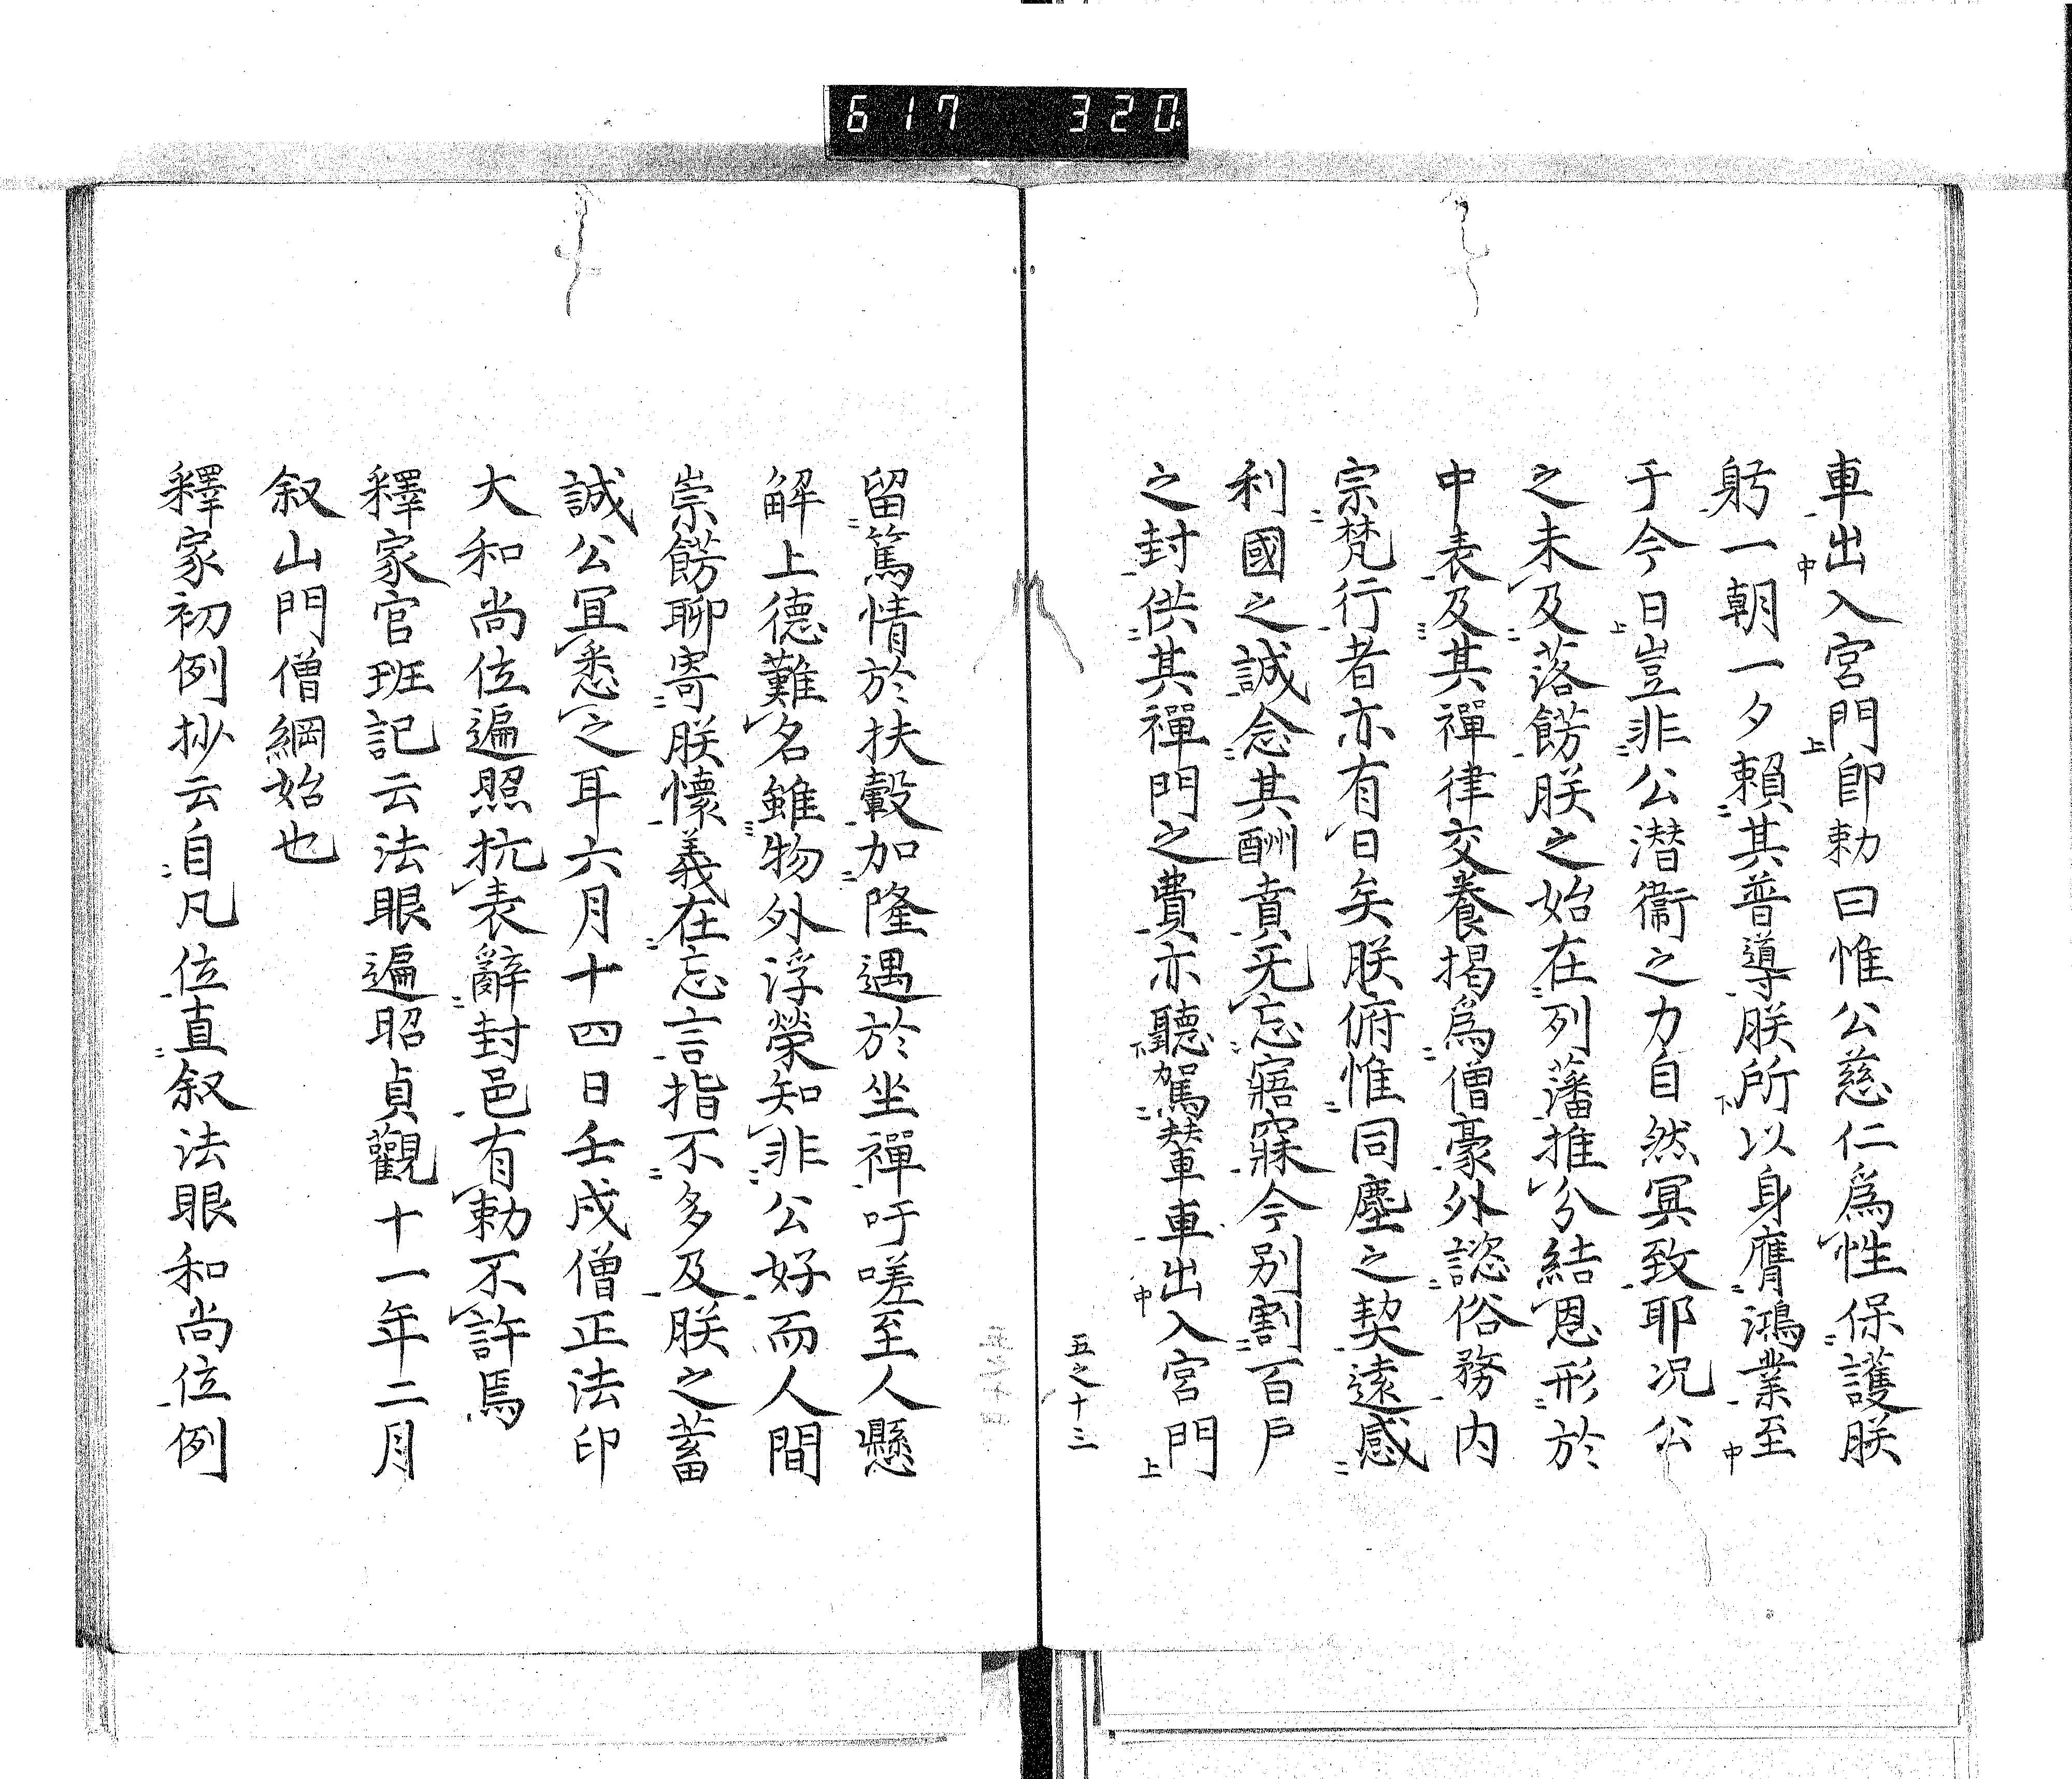 617 320
車出入宮門卽勅曰惟公慈仁爲性保護朕
躬一朝一夕賴其普導朕所以身膺鴻業至
于今日豈非公潜衞之力自然冥致耶况公
之未及落餝朕之始在列藩推分結恩形於
中表及其禪律交養揭爲僧豪外諮俗務内
宗梵行者亦有日矣朕俯惟同塵之契遠感
利國之誠念其酬賁旡忘寤寐今別割百戶
之封供其禪門之費亦聽駕輦車出入宮門
五之十三
留篤情於扶轂加隆遇於坐禪吁嗟至人懸
解上德難名雖物外浮榮知非公好而人間
崇餝聊寄朕懷義在忘言指不多及朕之蓄
誠公冝悉之耳六月十四日壬戌僧正法印
大和尚位遍照抗表辭封邑有勅不許焉
釋家官班記云法眼遍昭貞觀十一年二月
叙山門僧綱始也
釋家初例抄云自凡位直叙法眼和尚位例